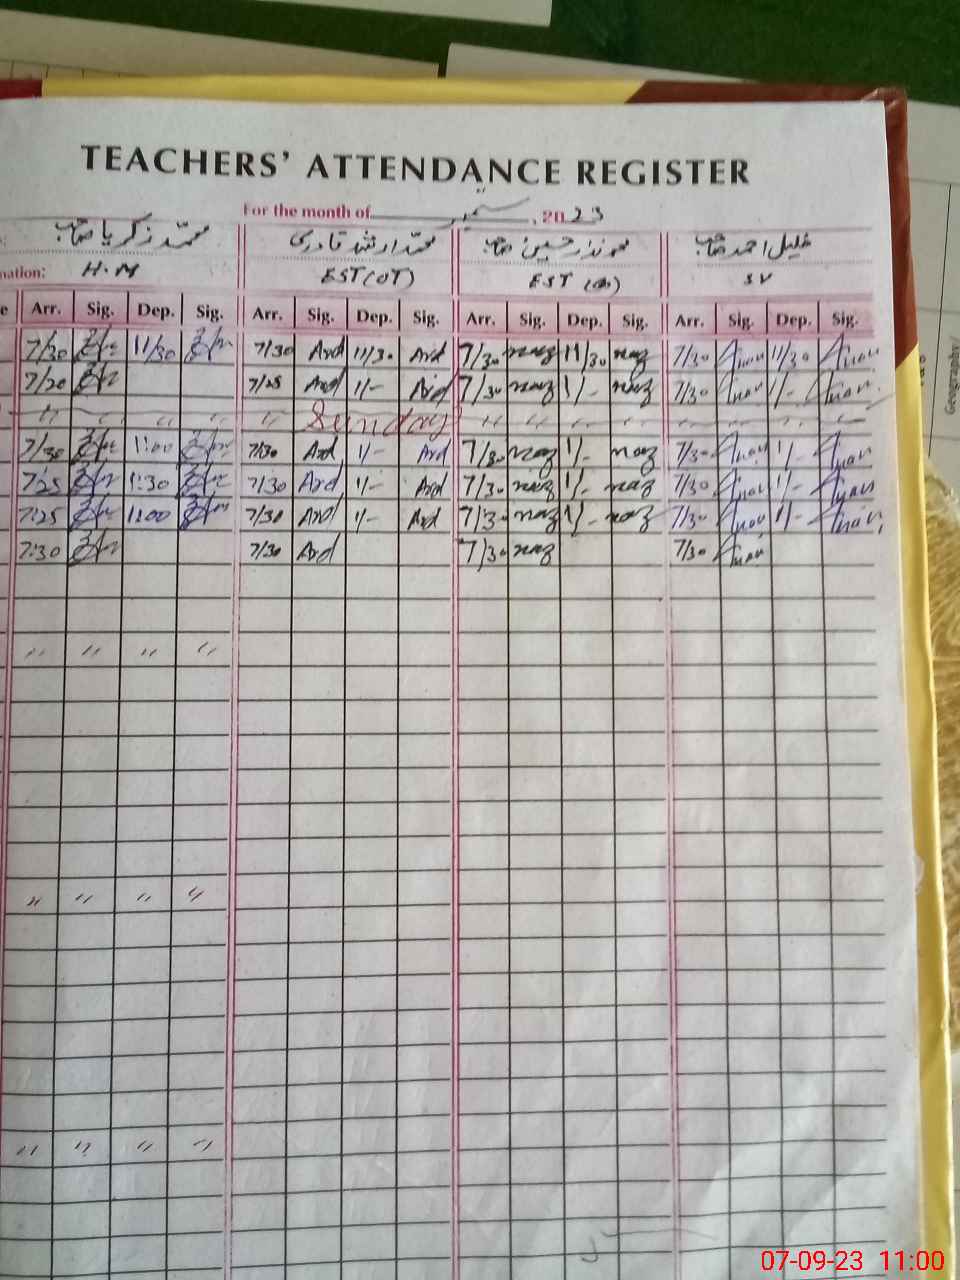 TEACHERS' ATTENDANCE REGISTER
For the month of ستمبر, 2023
محمد زکریا صاحب محمد ارشد قادری محمد نذر حسین صاحب خلیل احمد صاحب
nation: H.M EST(OT) EST SV
e Arr. Sig. Dep. Sig. Arr. Sig. Dep. Sig. Arr. Sig. Dep. Sig. Arr. Sig. Dep. Sig.
7/30 11/30 7/30 Ard 11/30 Ard 7/30 naz 11/30 naz 7/30 11/30
7/20 7/25 Ard 1/- Ard 7/30 naz 1/- naz 7/30 1/-
" " " " " Sunday " " " " " " " "
7/30 1:00 7/30 Ard 1/- Ard 7/30 naz 1/- naz 7/30 1/-
7:25 1:30 7/30 Ard 1/- Ard 7/30 naz 1/- naz 7/30 1/-
7:25 1:00 7/30 Ard 1/- Ard 7/30 naz 1/- naz 7/30 1/-
7:30 7/30 Ard 7/30 naz 7/30
" " " "
" " " "
" " " "
Geography/
07-09-23 11:00